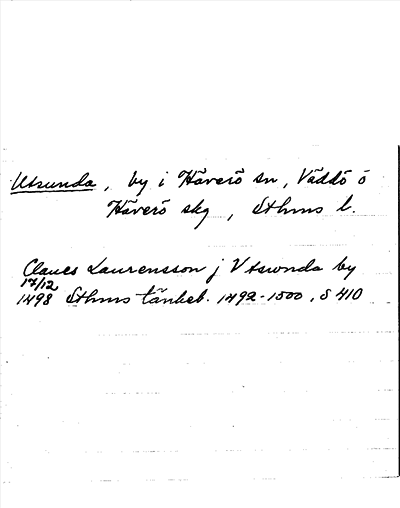 Utsunda, by i Häverö sn, Väddö o
Häverö skg, Sthms l.
Claues Laurensson j Vtswnda by
17/12
1498 Sthms tänkeb. 1492-1500, s 410